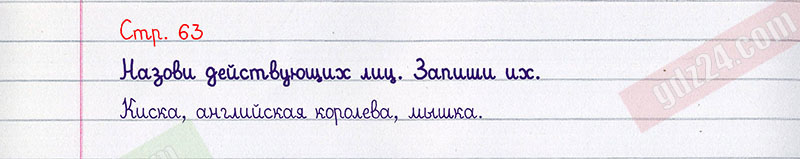 Стр. 63
Назови действующих лиц. Запиши их.
Киска, английская королева, мышка.
gdz24.com